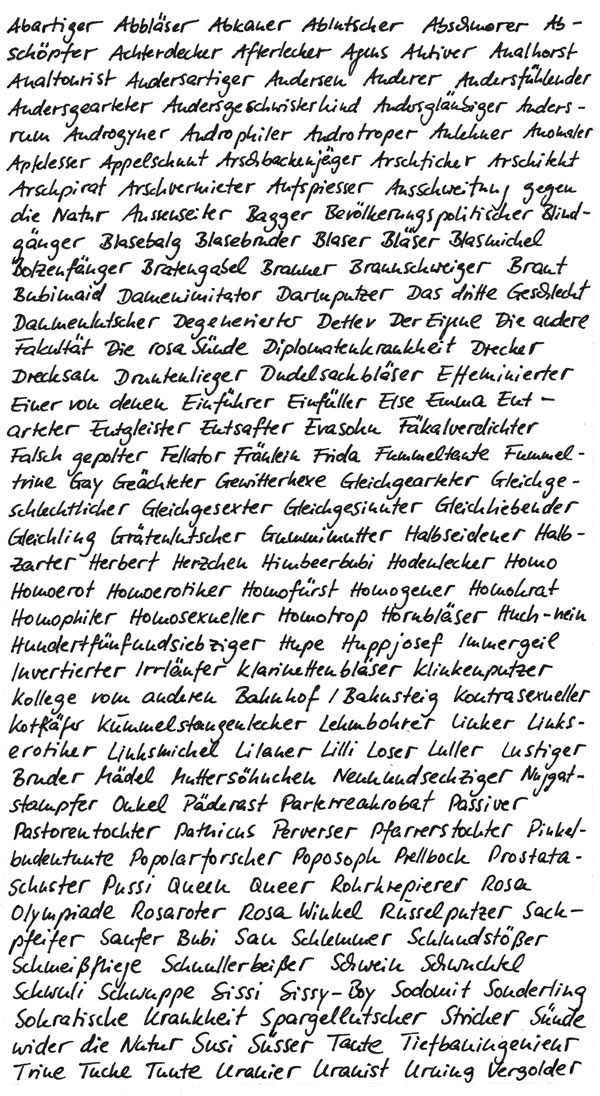 Abartiger Abbläser Abkauer Ablutscher Abschmorer Ab-
schöpfer Achterdecker Afterlecker Agens Aktiver Analhorst
Analtourist Andersartiger Andersen Anderer Andersfühlender
Andersgearteter Andersgeschwisterkind Andersgläubiger Anders-
rum Androgyner Androphiler Androtroper Anlehner Anomaler
Apfelesser Appelschnut Arschbackenjäger Arschficker Arschitekt
Arschpirat Arschvermieter Aufspiesser Ausschweifung gegen
die Natur Aussenseiter Bagger Bevölkerungspolitischer Blind-
gänger Blasebalg Blasebruder Blaser Bläser Blasmichel
Bolzenfänger Bratengabel Brauner Braunschweiger Braut
Bubimaid Damenimitator Darmputzer Das dritte Geschlecht
Daumenlutscher Degenerierter Detlev Der Eigene Die andere
Fakultät Die rosa Sünde Diplomatenkrankheit Drecker
Drecksau Druntenlieger Dudelsackbläser Effeminierter
Einer von denen Einführer Einfüller Else Emma Ent-
arteter Entgleister Entsafter Evasohn Fäkalverdichter
Falsch gepolter Fellator Fräulein Frida Fummeltante Fummel-
trine Gay Geächteter Gewitterhexe Gleichgearteter Gleichge-
schlechtlicher Gleichgesexter Gleichgesinnter Gleichliebender
Gleichling Grätenlutscher Gummimutter Halbseidener Halb-
zarter Herbert Herzchen Himbeerbubi Hodenlecker Homo
Homoerot Homoerotiker Homofürst Homogener Homokrat
Homophiler Homosexueller Homotrop Hornbläser Huch-nein
Hundertfünfundsiebziger Hupe Huppjosef Immergeil
Invertierter Irrläufer Klarinettenbläser Klinkenputzer
Kollege vom anderen Bahnhof / Bahnsteig Kontrasexueller
Kotkäfer Kümmelstangenlecker Lehmbohrer Linker Links-
erotiker Linksmichel Lilaner Lilli Loser Luller Lustiger
Bruder Mädel Muttersöhnchen Neunundsechziger Nugat-
stampfer Onkel Päderast Parterreakrobat Passiver
Pastorentochter Pathicus Perverser Pfarrerstochter Pinkel-
budentunte Popolarforscher Poposoph Prellbock Prostata-
schuster Pussi Queen Queer Rohrkrepierer Rosa
Olympiade Rosaroter Rosa Winkel Rüsselputzer Sack-
pfeifer Saufer Bubi Sau Schlemmer Schlundstößer
Schmeißfliege Schnullerbeißer Schwein Schwuchtel
Schwuli Schwuppe Sissi Sissy-Boy Sodomit Sonderling
Sokratische Krankheit Spargellutscher Stricher Sünde
wider die Natur Susi Süsser Tante Tiefbauingenieur
Trine Tucke Tunte Uranier Uranist Urning Vergolder